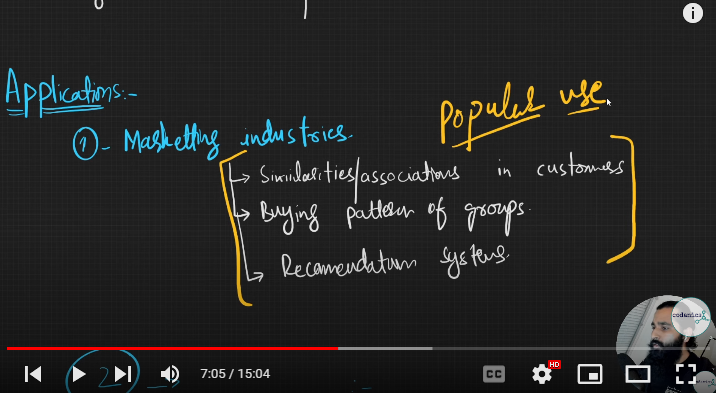 Applications:-
Popular use
①- Marketting industries.
→ Similarities/associations in customers
→ Buying pattern of groups.
→ Recomendation systems.
codanics
2
7:05 / 15:04
CC
HD